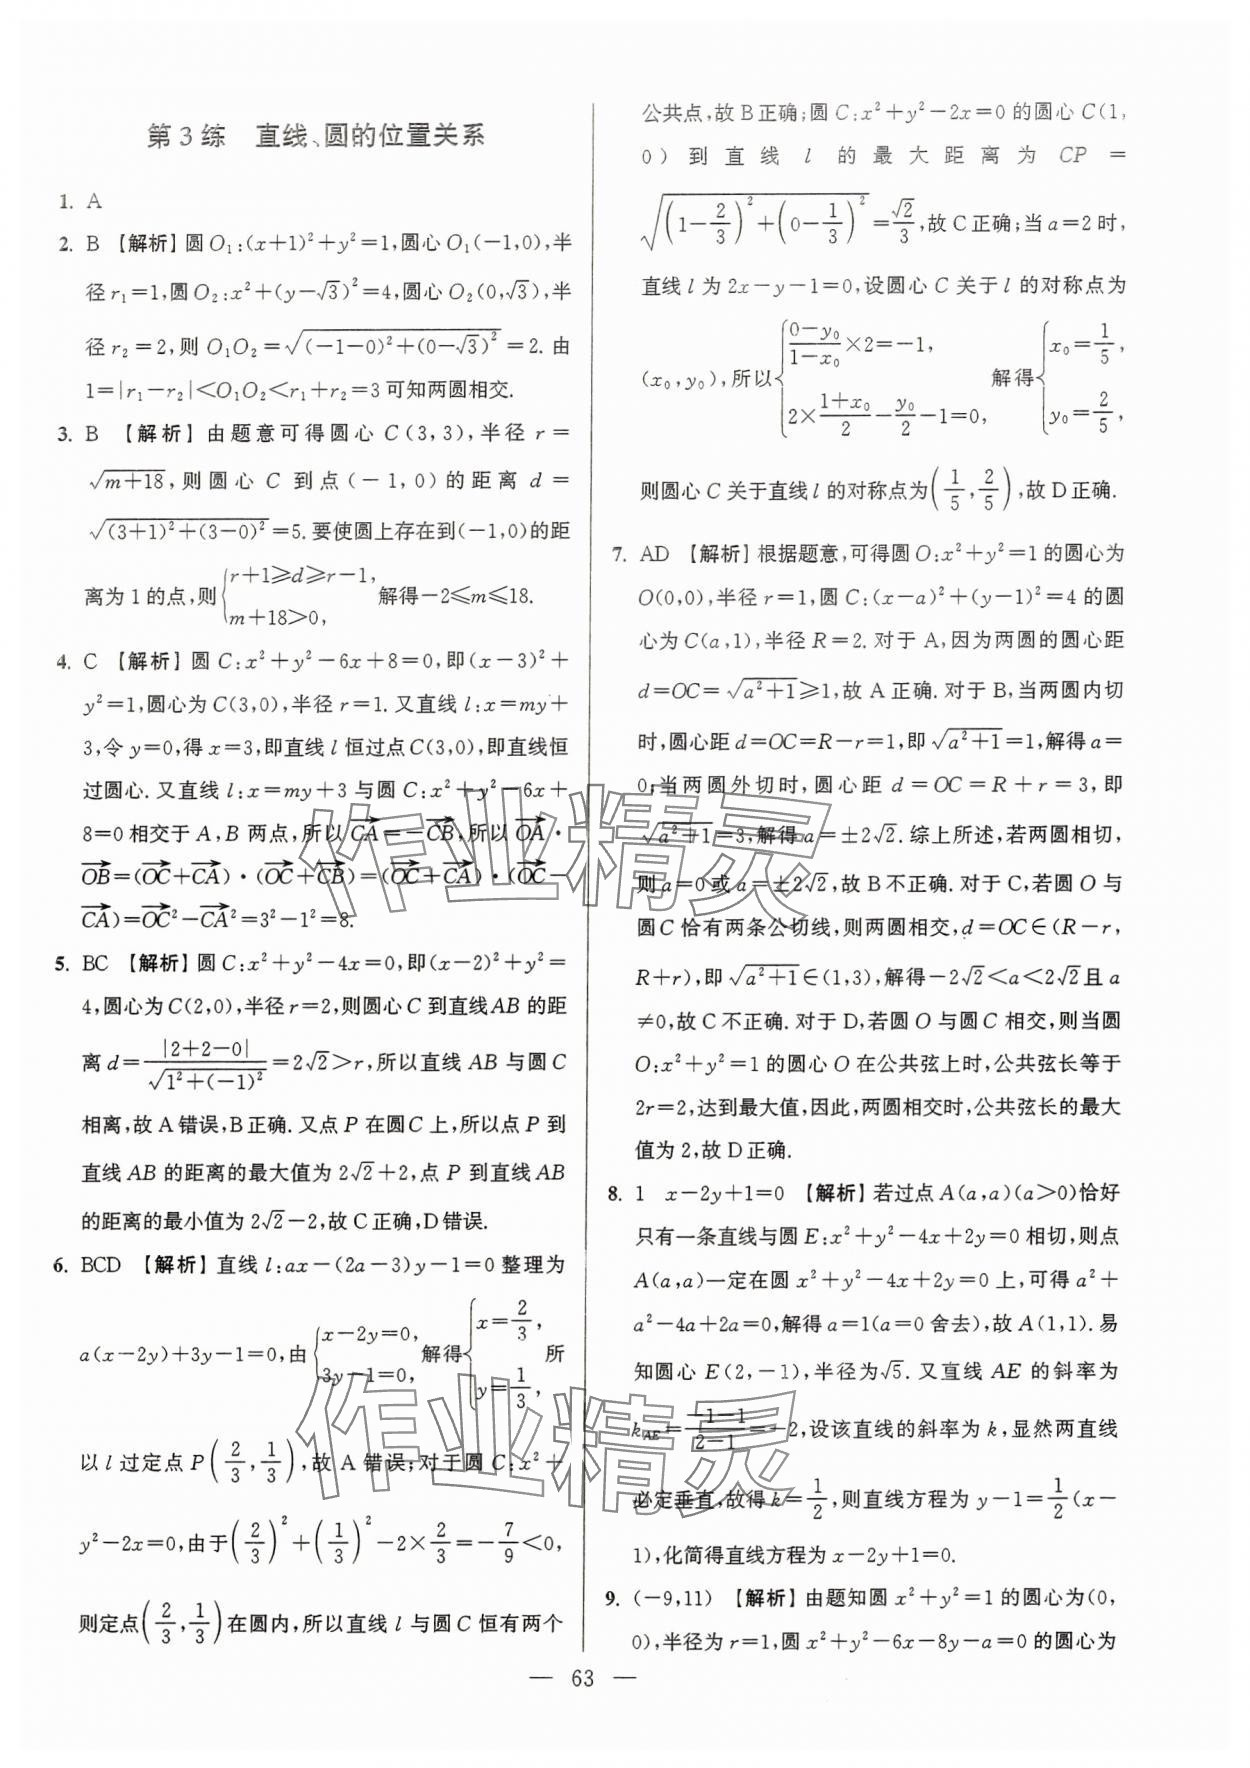 第3练　直线、圆的位置关系
1. A
2. B 【解析】圆O₁:(x+1)²+y²=1,圆心O₁(−1,0),半
径r₁=1,圆O₂:x²+(y−√3)²=4,圆心O₂(0,√3),半
径r₂=2,则O₁O₂=√((−1−0)²+(0−√3)²)=2.由
1=|r₁−r₂|<O₁O₂<r₁+r₂=3可知两圆相交.
3. B 【解析】由题意可得圆心C(3,3),半径r=
√(m+18),则圆心C到点(−1,0)的距离d=
√((3+1)²+(3−0)²)=5.要使圆上存在到(−1,0)的距
离为1的点,则{r+1≥d≥r−1, m+18>0, 解得−2≤m≤18.
4. C 【解析】圆C:x²+y²−6x+8=0,即(x−3)²+
y²=1,圆心为C(3,0),半径r=1.又直线l:x=my+
3,令y=0,得x=3,即直线l恒过点C(3,0),即直线恒
过圆心.又直线l:x=my+3与圆C:x²+y²−6x+
8=0相交于A,B两点,所以→CA=−→CB,所以→OA·
→OB=(→OC+→CA)·(→OC+→CB)=(→OC+→CA)·(→OC−
→CA)=→OC²−→CA²=3²−1²=8.
5. BC 【解析】圆C:x²+y²−4x=0,即(x−2)²+y²=
4,圆心为C(2,0),半径r=2,则圆心C到直线AB的距
离d=|2+2−0|/√(1²+(−1)²)=2√2>r,所以直线AB与圆C
相离,故A错误,B正确.又点P在圆C上,所以点P到
直线AB的距离的最大值为2√2+2,点P到直线AB
的距离的最小值为2√2−2,故C正确,D错误.
6. BCD 【解析】直线l:ax−(2a−3)y−1=0整理为
a(x−2y)+3y−1=0,由{x−2y=0, 3y−1=0, 解得{x=2/3, y=1/3, 所
以l过定点P(2/3,1/3),故A错误;对于圆C:x²+
y²−2x=0,由于(2/3)²+(1/3)²−2×2/3=−7/9<0,
则定点(2/3,1/3)在圆内,所以直线l与圆C恒有两个
公共点,故B正确;圆C:x²+y²−2x=0的圆心C(1,
0)到直线l的最大距离为CP=
√((1−2/3)²+(0−1/3)²)=√2/3,故C正确;当a=2时,
直线l为2x−y−1=0,设圆心C关于l的对称点为
(x₀,y₀),所以{(0−y₀)/(1−x₀)×2=−1, 2×(1+x₀)/2−y₀/2−1=0, 解得{x₀=1/5, y₀=2/5,
则圆心C关于直线l的对称点为(1/5,2/5),故D正确.
7. AD 【解析】根据题意,可得圆O:x²+y²=1的圆心为
O(0,0),半径r=1,圆C:(x−a)²+(y−1)²=4的圆
心为C(a,1),半径R=2.对于A,因为两圆的圆心距
d=OC=√(a²+1)≥1,故A正确.对于B,当两圆内切
时,圆心距d=OC=R−r=1,即√(a²+1)=1,解得a=
0;当两圆外切时,圆心距d=OC=R+r=3,即
√(a²+1)=3,解得a=±2√2.综上所述,若两圆相切,
则a=0或a=±2√2,故B不正确.对于C,若圆O与
圆C恰有两条公切线,则两圆相交,d=OC∈(R−r,
R+r),即√(a²+1)∈(1,3),解得−2√2<a<2√2且a
≠0,故C不正确.对于D,若圆O与圆C相交,则当圆
O:x²+y²=1的圆心O在公共弦上时,公共弦长等于
2r=2,达到最大值,因此,两圆相交时,公共弦长的最大
值为2,故D正确.
8. 1　x−2y+1=0 【解析】若过点A(a,a)(a>0)恰好
只有一条直线与圆E:x²+y²−4x+2y=0相切,则点
A(a,a)一定在圆x²+y²−4x+2y=0上,可得a²+
a²−4a+2a=0,解得a=1(a=0舍去),故A(1,1).易
知圆心E(2,−1),半径为√5.又直线AE的斜率为
k_AE=(−1−1)/(2−1)=−2,设该直线的斜率为k,显然两直线
必定垂直,故得k=1/2,则直线方程为y−1=1/2(x−
1),化简得直线方程为x−2y+1=0.
9. (−9,11) 【解析】由题知圆x²+y²=1的圆心为(0,
0),半径为r=1,圆x²+y²−6x−8y−a=0的圆心为
— 63 —
作业精灵
作业精灵